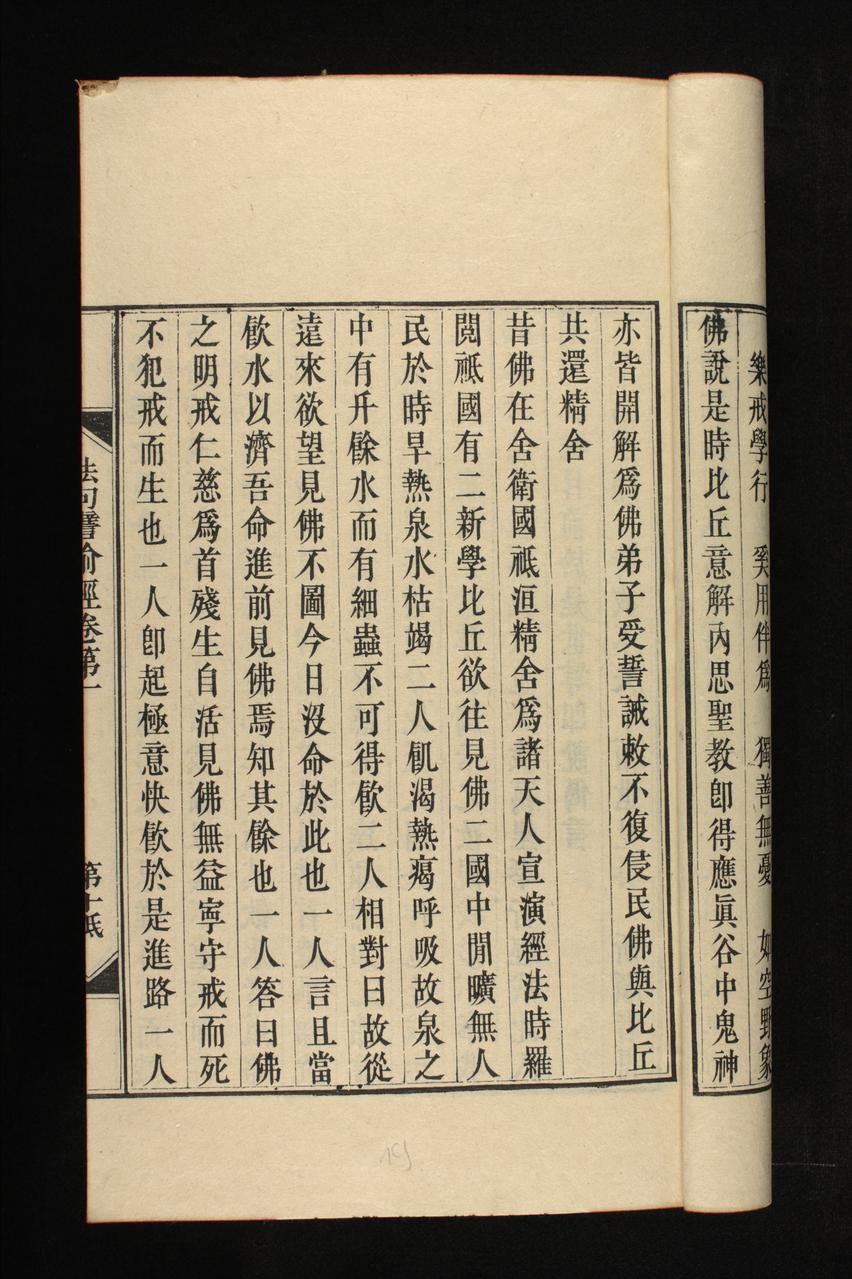 樂戒學行　奚用伴爲　獨善無憂　如空野象
佛說是時比丘意解內思聖教卽得應眞谷中鬼神
亦皆開解爲佛弟子受誓誡敕不復侵民佛與比丘
共還精舍
昔佛在舍衛國祇洹精舍爲諸天人宣演經法時羅
閱祇國有二新學比丘欲往見佛二國中閒曠無人
民於時旱熱泉水枯竭二人飢渴熱暍呼吸故泉之
中有升餘水而有細蟲不可得飮二人相對曰故從
遠來欲望見佛不圖今日沒命於此也一人言且當
飮水以濟吾命進前見佛焉知其餘也一人答曰佛
之明戒仁慈爲首殘生自活見佛無益寧守戒而死
不犯戒而生也一人卽起極意快飮於是進路一人
法句譬喻經卷第一
第十紙
19